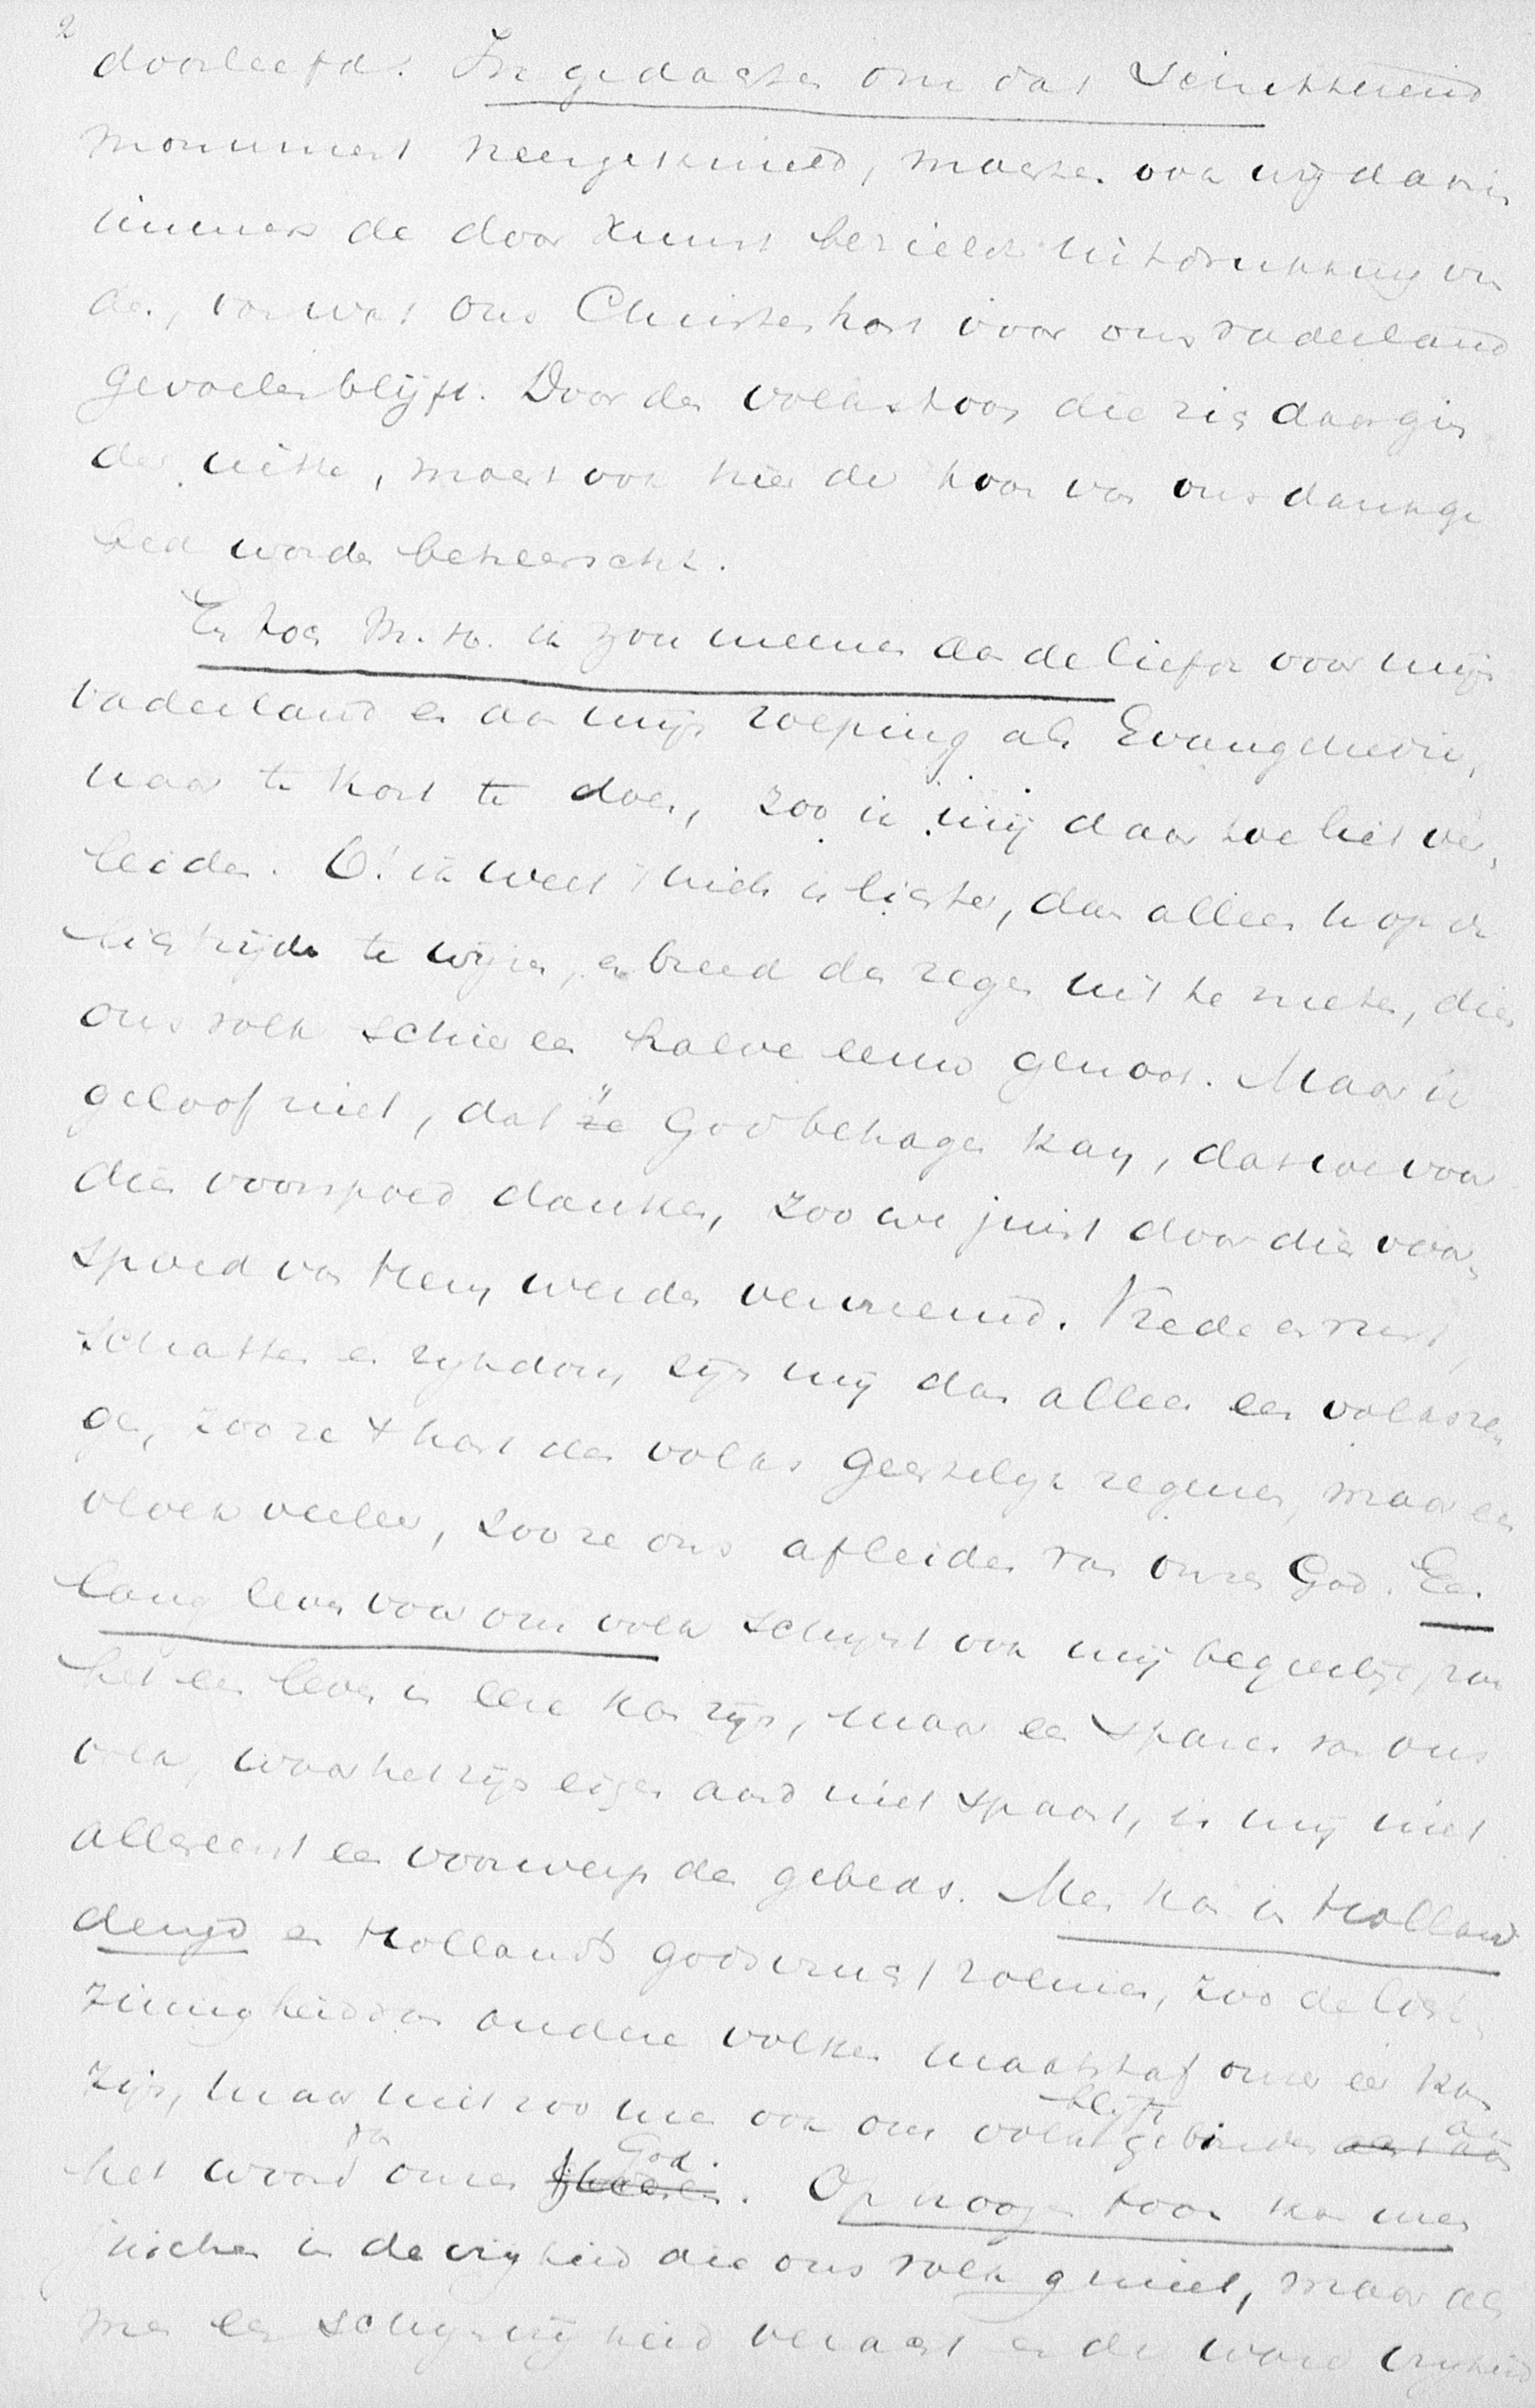 2
doorleefd. In gedachten om dat schitterend
monument neergeknield, mochten ook wij daarin
immers de door kunst bezielde uitdrukking vin
den, van wat ons Christenhart voor ons vaderland
gevoelen blijft. Door den volkstoon die zich daargin
der uitte, moest ook hier de toon van ons dankge
bed worden beheerscht.
En toch M. H. ik zou meenen aan de liefde voor mijn
vaderland en aan mijn roeping als Evangeliedie,
naar te kort te doen, zoo ik mij daartoe liet ver,
leiden. O! ik weet niets is lichter, dan alleen op de
lichtzijde te wijzen, en breed den zegen uit te meten, dien
ons volk schier een halve eeuw genoot. Maar ik
geloof niet, dat 't ze God behagen kan, dat we voor
dien voorspoed danken, zoo we juist door dien voor,
spoed van Hem werden vervreemd. Vrede en rust,
schatten en rijkdom zijn mij dan alleen een volksze,
gen, zoo ze 't hart des volks geestelijk zegenen, maar een
vloek veeleer, zoo ze ons afleiden van onzen God. Een
lang leven voor ons volk schijnt ook mij begeerlijk, zoo
het een leven in eere kan zijn, maar een sparen van ons
volk, waar het zijn eigen aard niet spaart, is mij niet
allereerst een voorwerp des gebeds. Men kan in Hollands
deugd en Hollands godsvrucht roemen, zoo de licht,
zinnigheid van andere volken maatstaf onzer eer kan
zijn, maar niet zoo men ook ons volk blijft gebonden acht aan aan
het woord van onzen Heeren God. Op hoogen toon kan men
juichen in de vrijheid die ons volk geniet, maar als
men een schijnvrijheid veracht en de ware vrijheid